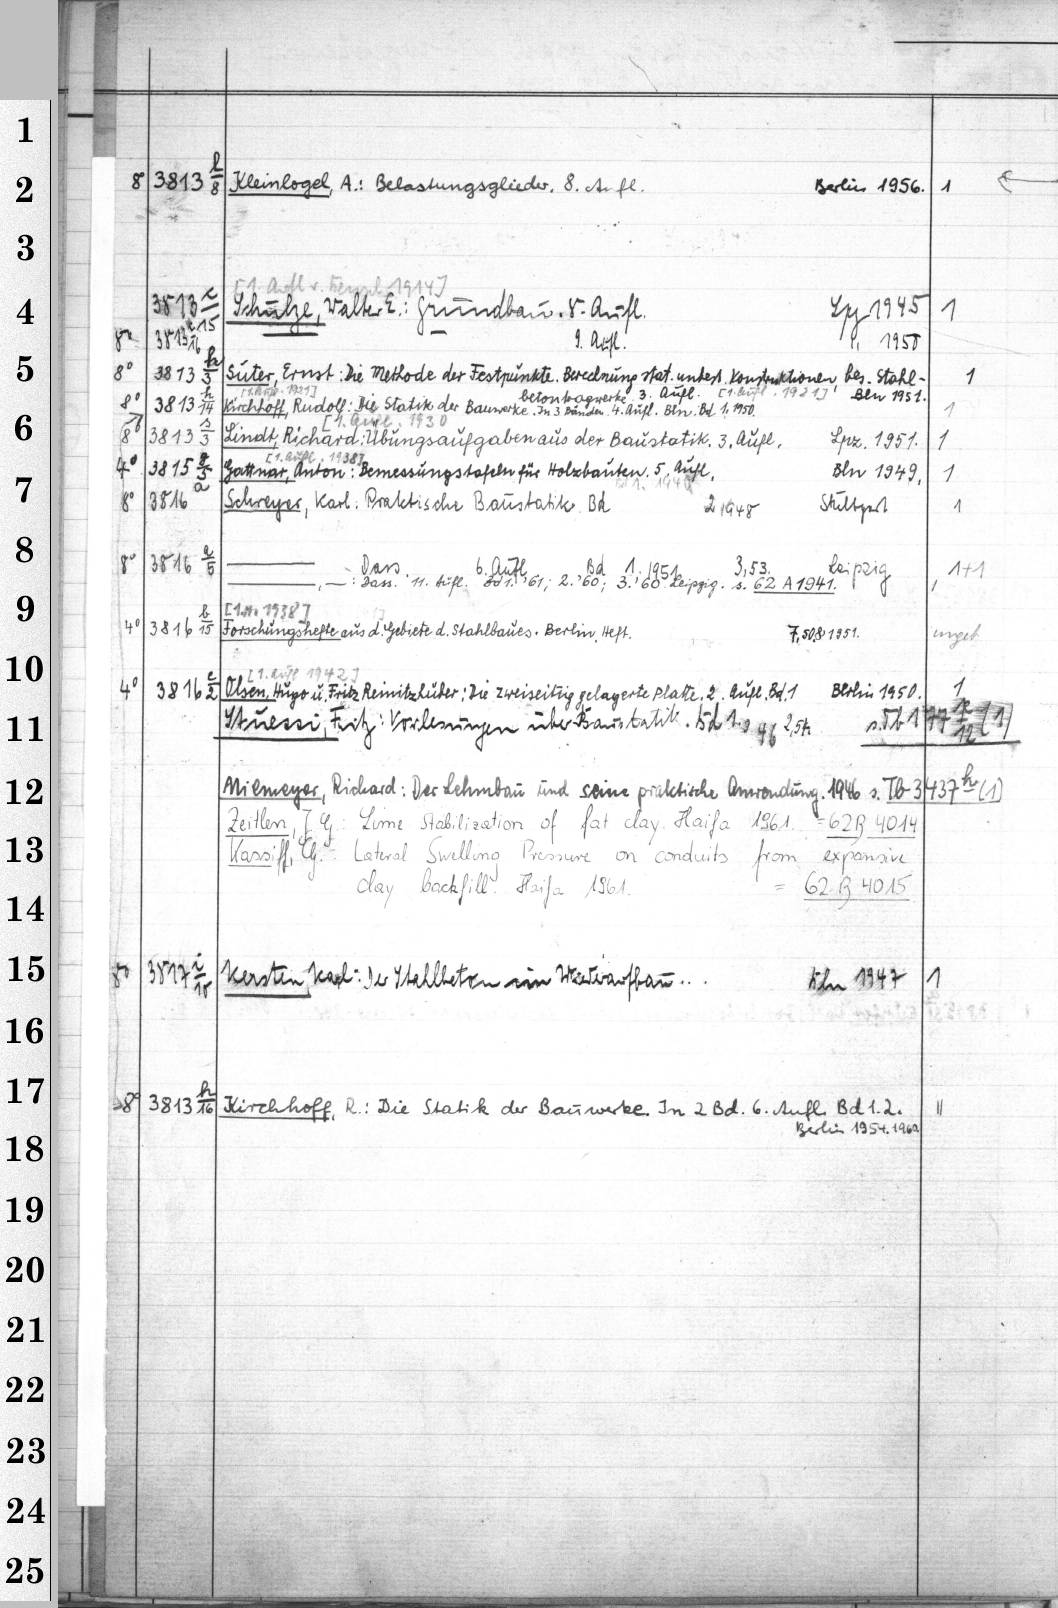 1
2 8 3813 l/8 Kleinlogel, A.: Belastungsglieder. 8. Aufl. Berlin 1956. 1
3
[1. Aufl. v. 1914]
4 3813 15 Schulze, Walter E.: Grundbau. 8. Aufl. Lpz 1945 1
8° 3813 16 9. Aufl. 1950
5 8° 3813 h/3 Suter, Ernst: Die Methode der Festpunkte. Berechnung stat. unbest. Konstruktionen, bes. Stahl- 1
[1. Aufl. 1921] betontragwerke. 3. Aufl. [1. Aufl. 1921] Bln 1951.
8° 3813 h/14 Kirchhoff, Rudolf: Die Statik der Bauwerke. In 3 Bänden. 4. Aufl. Bln. Bd. 1. 1950. 1
[1. Aufl. 1930
6 8° 3813 s/3 Lindt, Richard: Übungsaufgaben aus der Baustatik. 3. Aufl. Lpz. 1951. 1
[1. Aufl. 1938]
4° 3815 g/5 Gattnar, Anton: Bemessungstafeln für Holzbauten. 5. Aufl. Bln 1949. 1
Bd 1. 1948
7 8° 3816 a Schreyer, Karl: Praktische Baustatik. Bd 2, 1948 Stuttgart 1
8 8° 3816 a/5 — Dass. 6. Aufl. Bd 1. 1951. 3,53. Leipzig, 1+1
—, —: Dass. 11. Aufl. Bd 1. '61; 2. '60; 3. '60 Leipzig. s. 62 A 1941.
9 [1. 1938]
4° 3816 b/15 Forschungshefte aus d. Gebiete d. Stahlbaues. Berlin. Heft. 7,50,8 1951. ungeb
10 [1. Aufl 1942]
4° 3816 c/2 Olsen, Hugo u. Fritz Reinitzhuber: Die zweiseitig gelagerte Platte. 2. Aufl. Bd. 1 Berlin 1950. 1
11 Stuessi, Fritz: Vorlesungen über Baustatik. Bd 1. s. Tb 177 12 (1)
12 Niemeyer, Richard: Der Lehmbau und seine praktische Anwendung. 1946 s. Tb 3437 h (1)
Zeitlen, J. G.: Lime Stabilization of fat clay. Haifa 1961. = 62 B 4014
13 Kassiff, G.: Lateral Swelling Pressure on conduits from expansive
14 clay backfill. Haifa 1961. = 62 B 4015
15 8° 3817 i/18 Kersten, Karl: Der Stahlbeton im Wiederaufbau... Bln 1947 1
16
17 8° 3813 h/16 Kirchhoff, R.: Die Statik der Bauwerke. In 2 Bd. 6. Aufl. Bd 1.2. 11
Berlin 1954. 1960
18
19
20
21
22
23
24
25